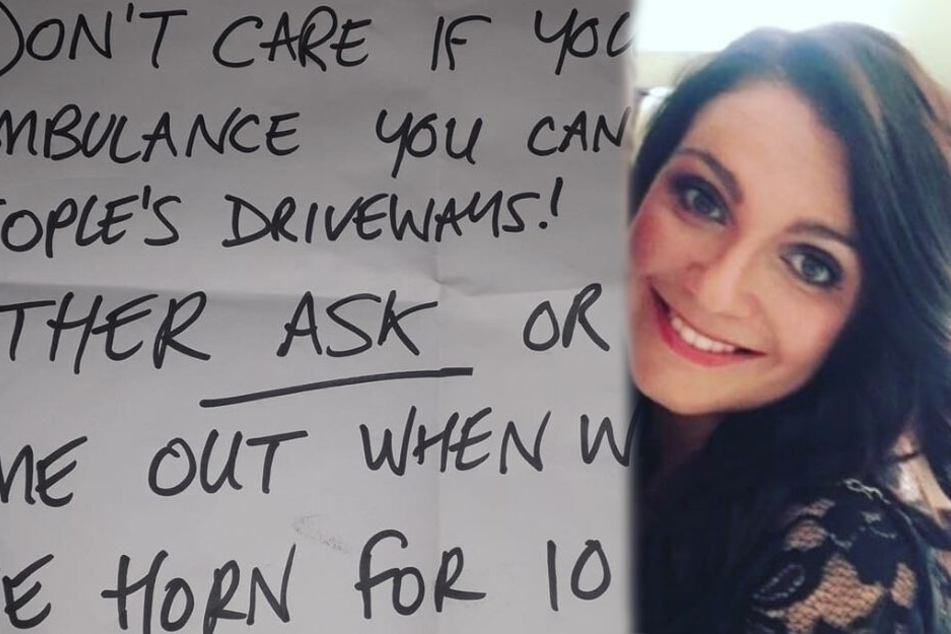 DON'T CARE IF YOU
MBULANCE YOU CAN
EOPLE'S DRIVEWAYS!
THER ASK OR
ME OUT WHEN W
E HORN FOR 10